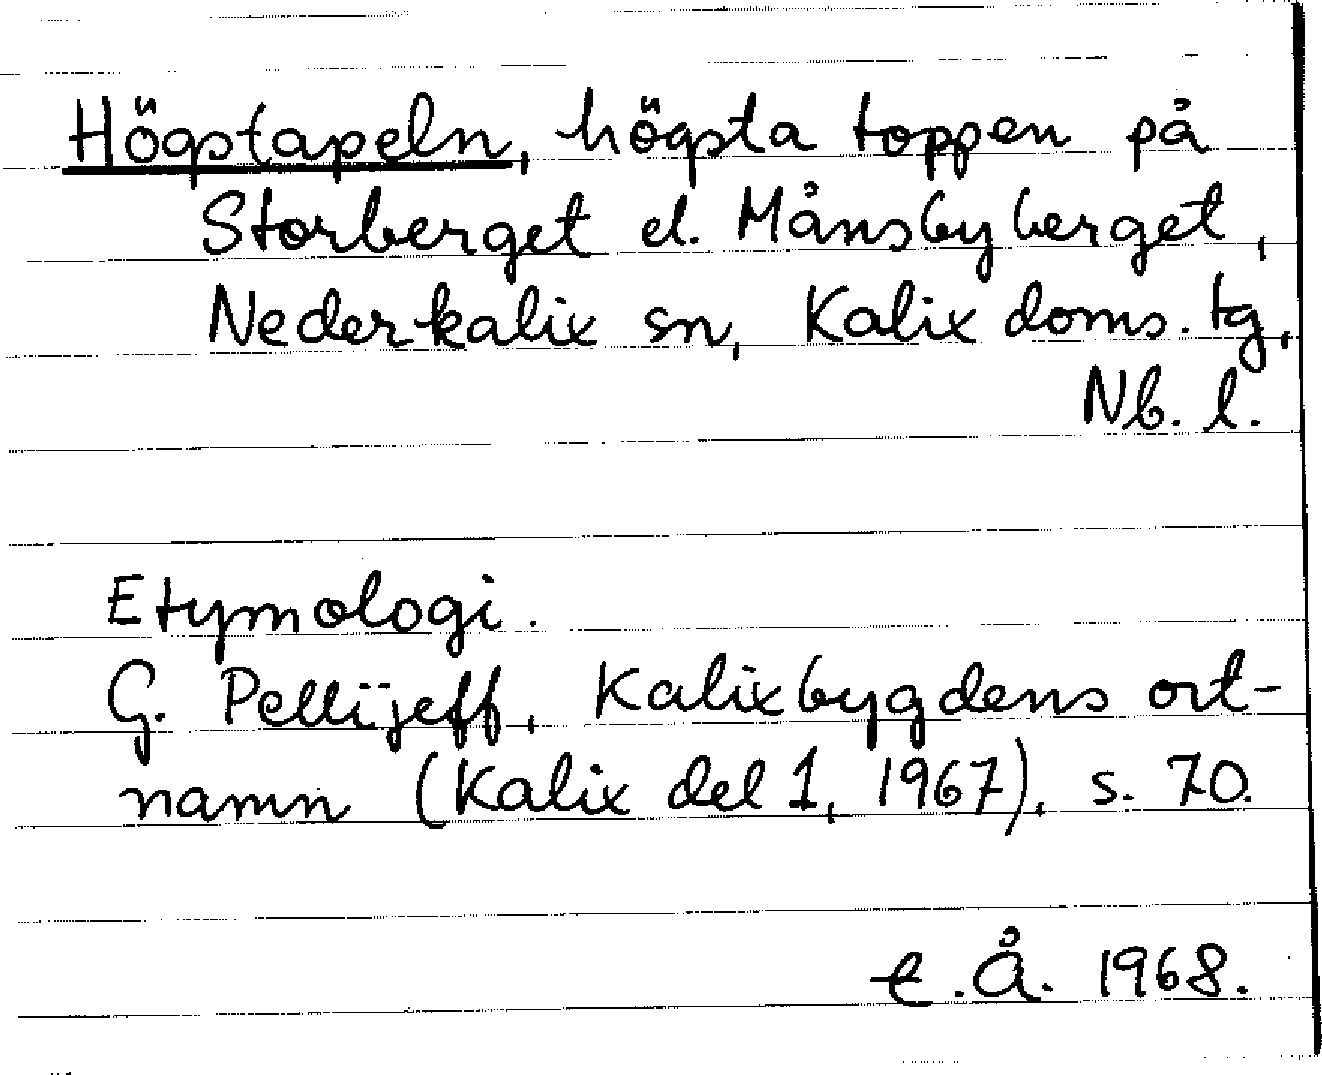 Högstapeln, högsta toppen på
Storberget el. Månsbyberget,
Nederkalix sn, Kalix doms. tg,
Nb. l.
Etymologi.
G. Pellijeff, Kalixbygdens ort-
namn (Kalix del 1, 1967), s. 70.
t.Å. 1968.